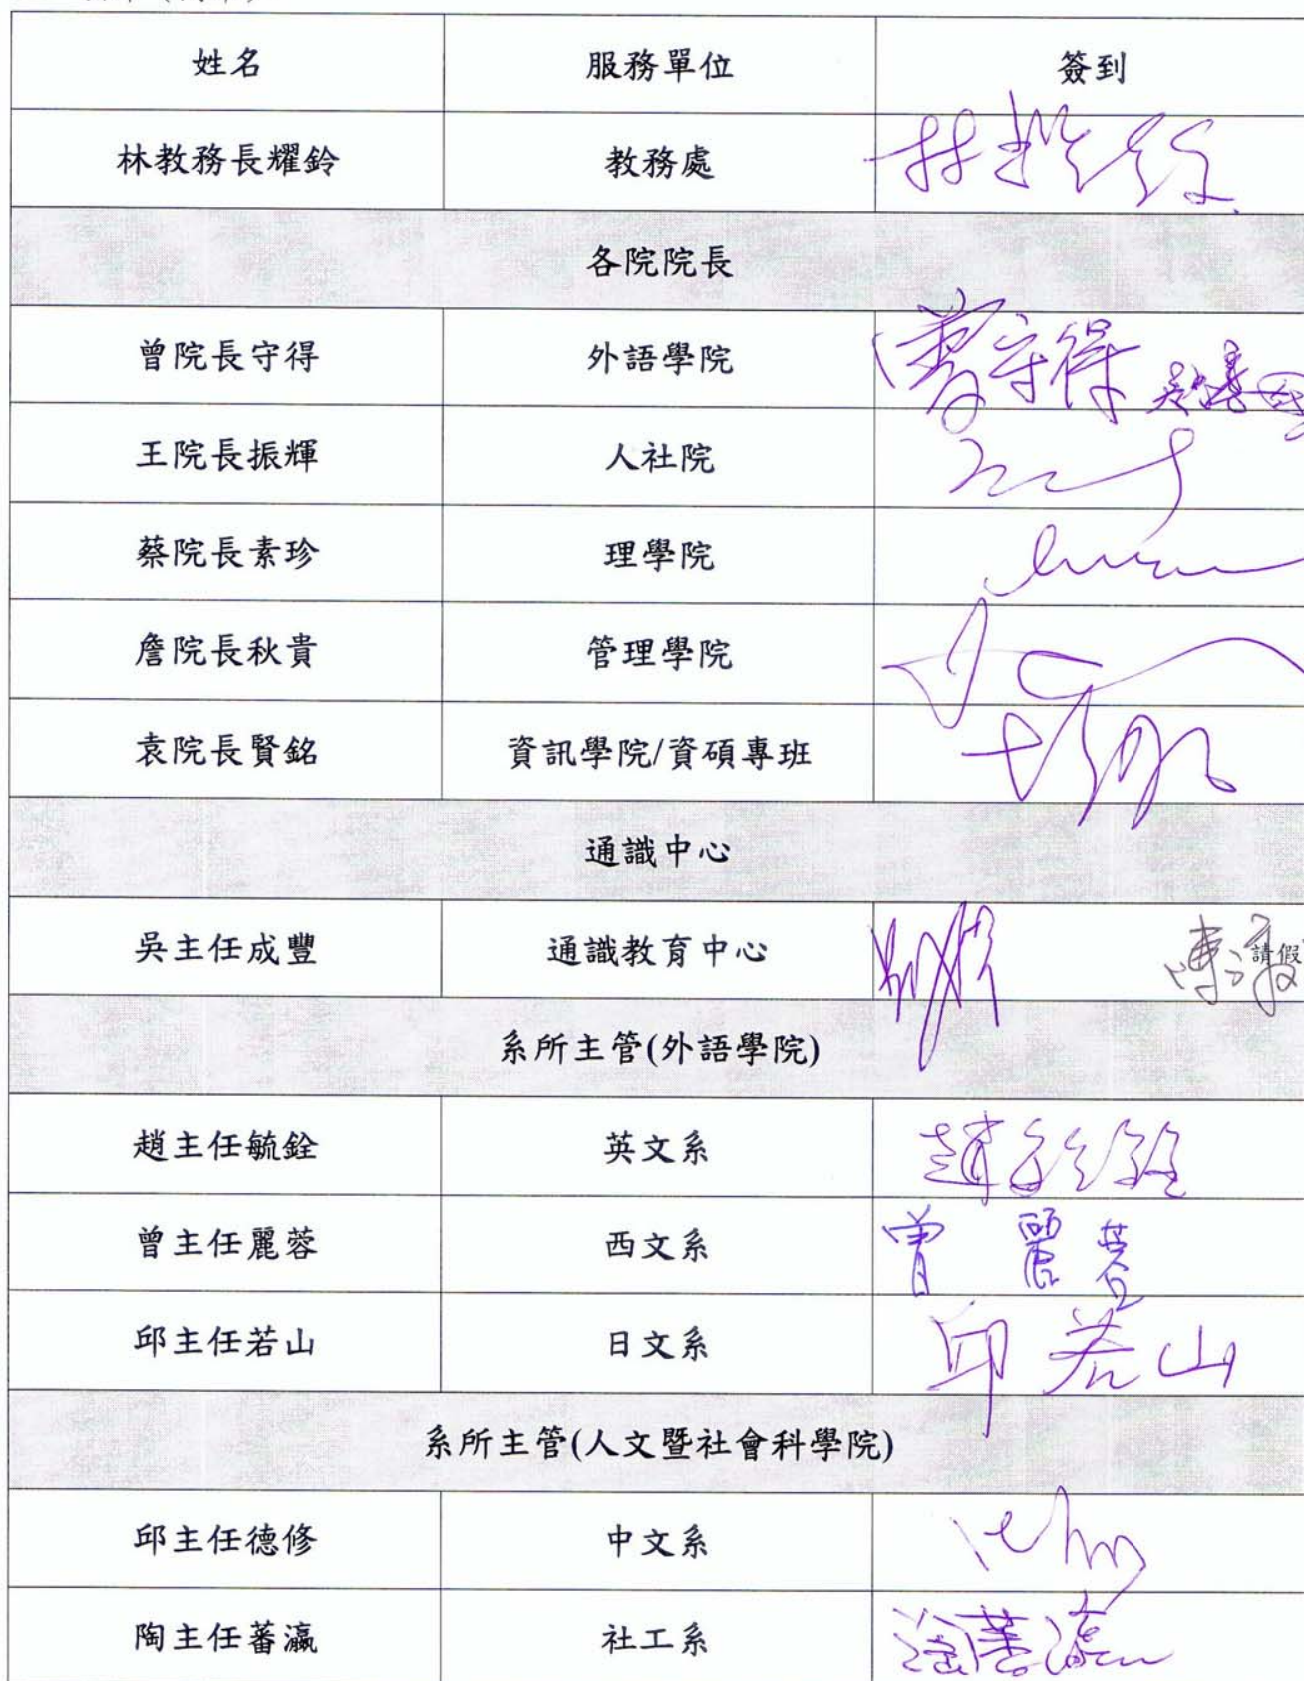 姓名 服務單位 簽到
林教務長耀鈴 教務處
各院院長
曾院長守得 外語學院 曾守得
王院長振輝 人社院
蔡院長素珍 理學院
詹院長秋貴 管理學院
袁院長賢銘 資訊學院/資碩專班
通識中心
吳主任成豐 通識教育中心 請假
系所主管(外語學院)
趙主任毓銓 英文系 趙毓銓
曾主任麗蓉 西文系 曾麗蓉
邱主任若山 日文系 邱若山
系所主管(人文暨社會科學院)
邱主任德修 中文系
陶主任蕃瀛 社工系 陶蕃瀛